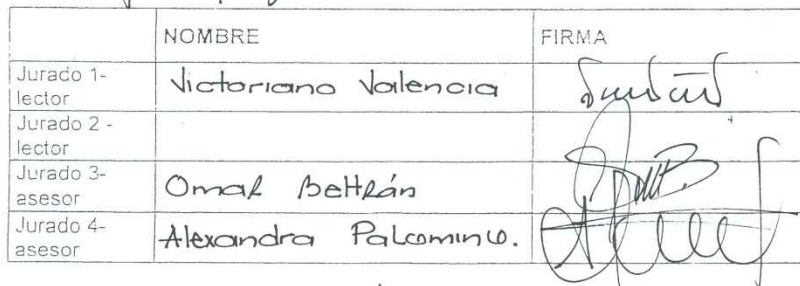 NOMBRE FIRMA
Jurado 1-
lector Victoriano Valencia
Jurado 2 -
lector
Jurado 3-
asesor Omar Beltrán
Jurado 4-
asesor Alexandra Palomino.